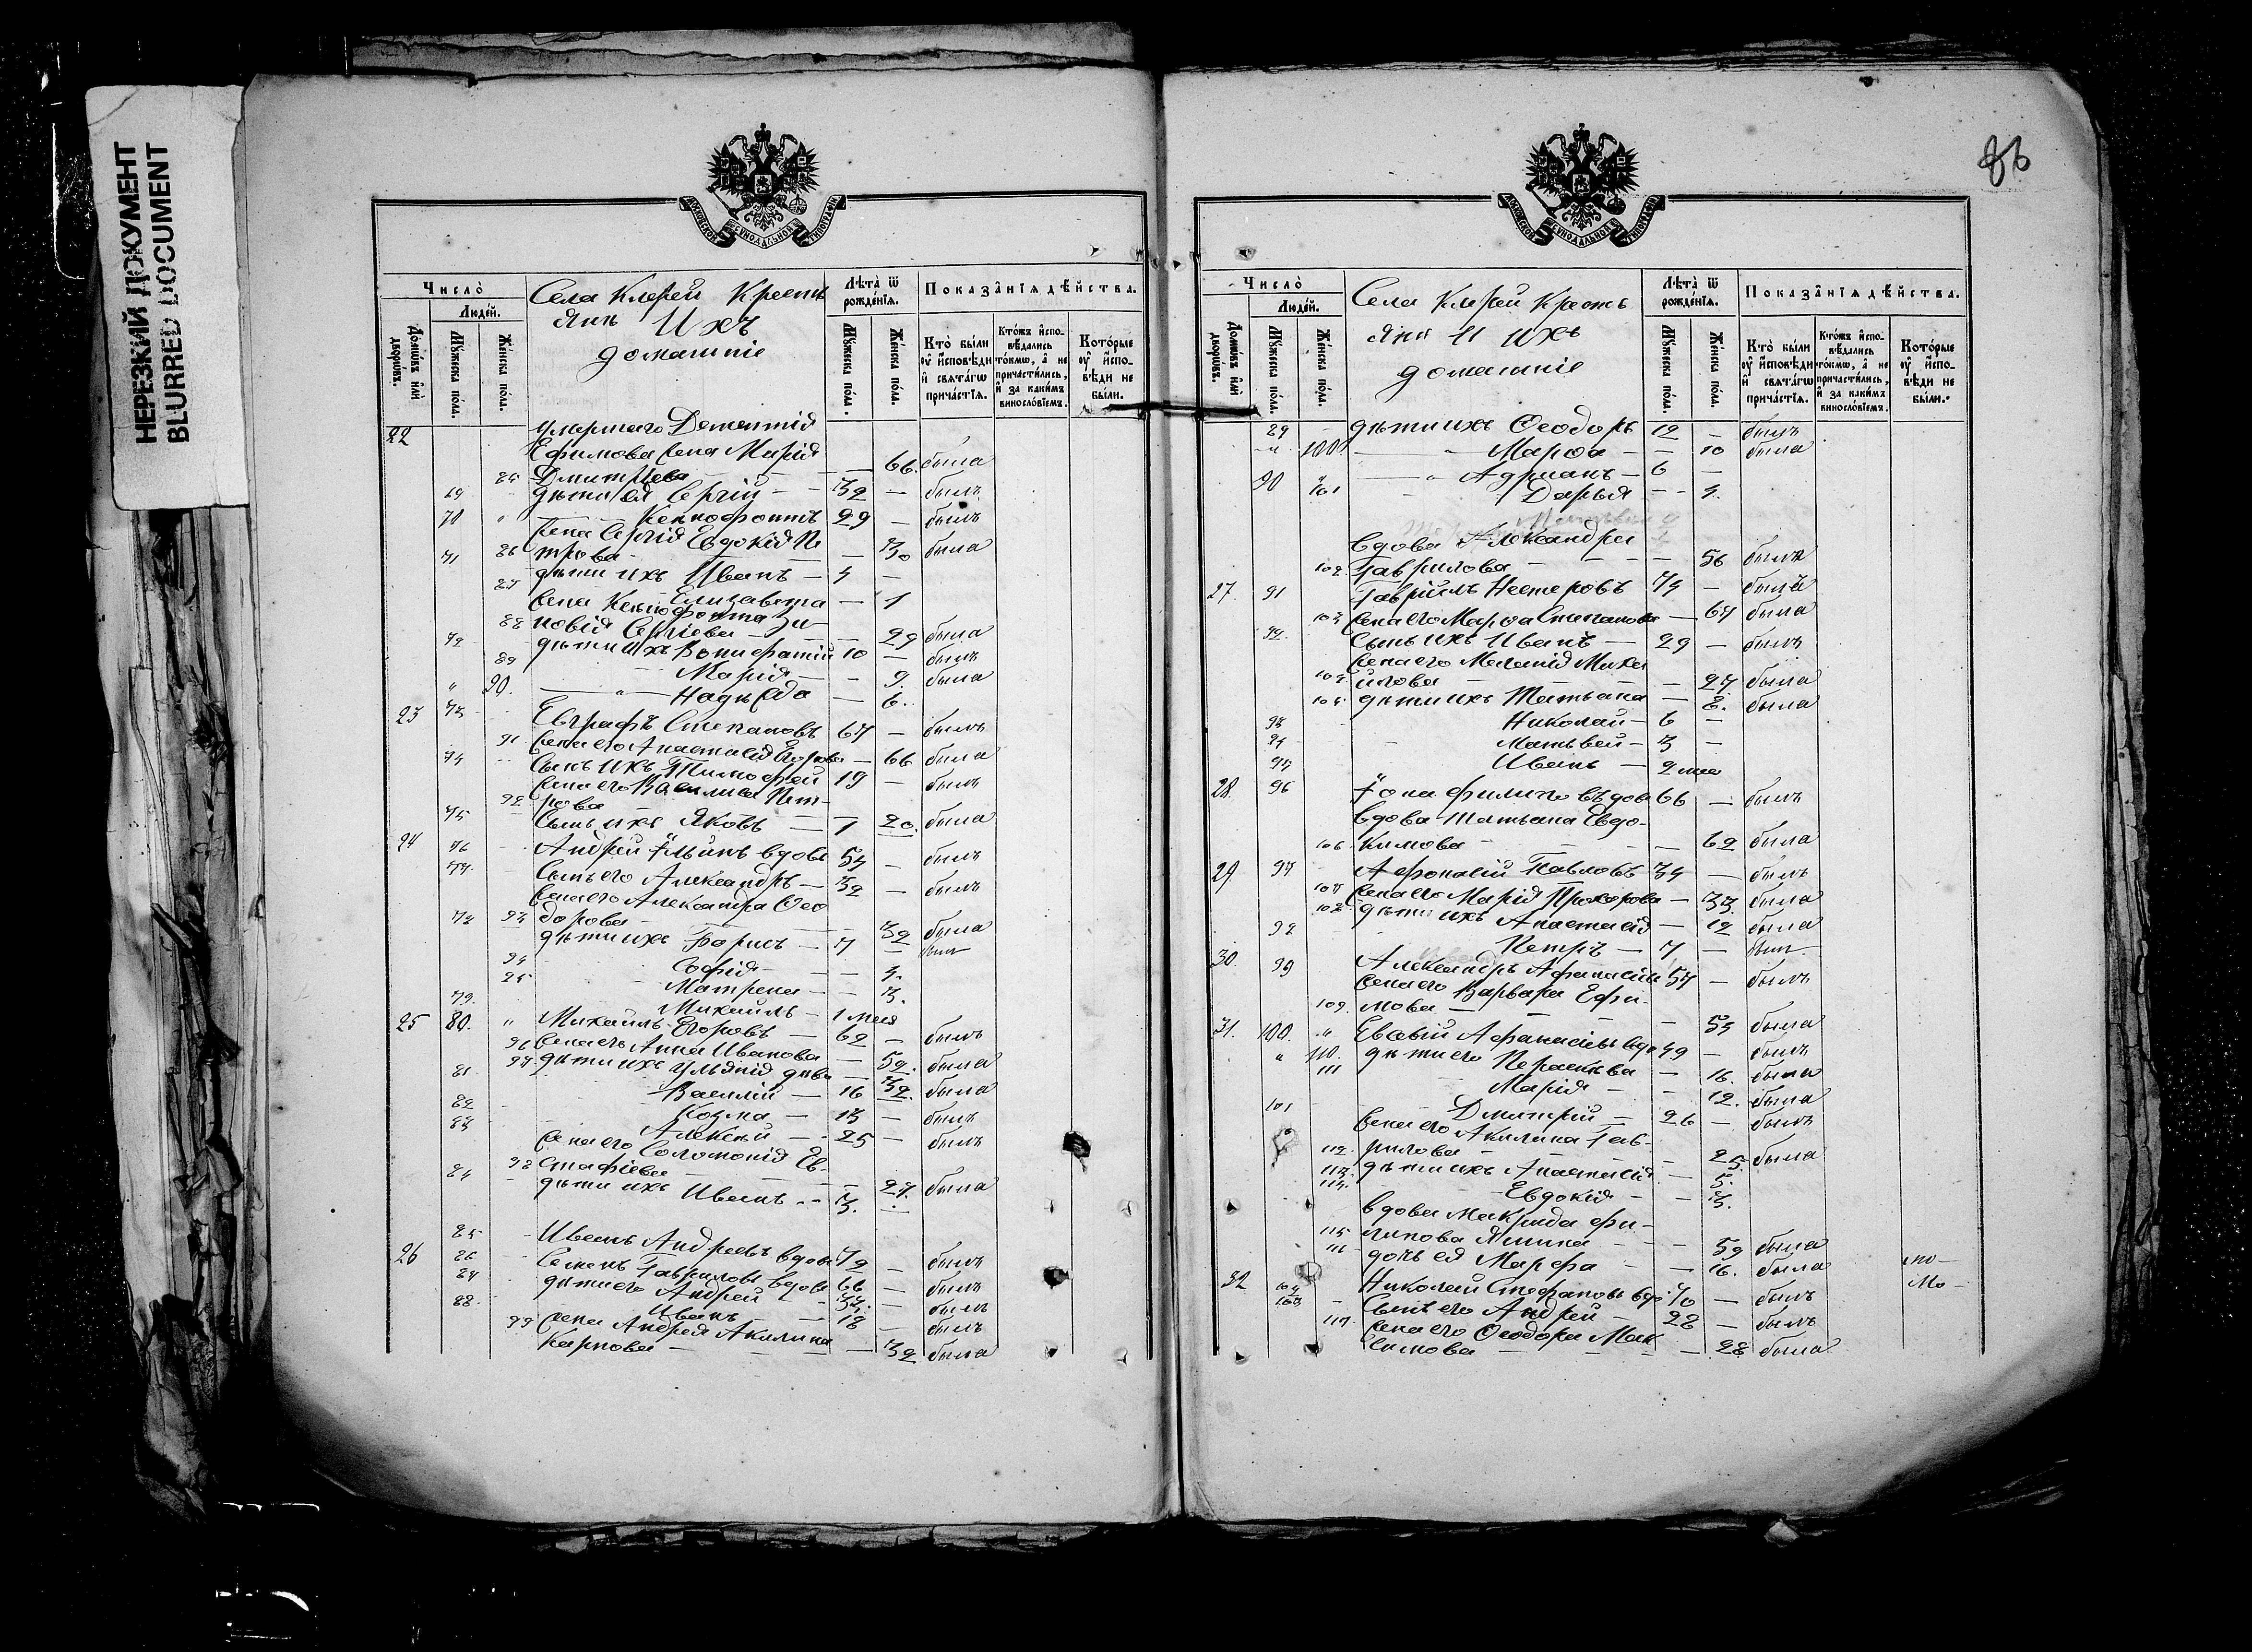 НЕРЕЗКИЙ ДОКУМЕНТ
BLURRED DOCUMENT
Число̀
Людей.
Домѡвъ и҆лѝ дворѡвъ.
Мꙋ́жеска пола.
Же́нска пола.
Села Клерей Кресть
янъ И ихъ
домашніе
Лѣта̀ ѿ рожденїѧ.
Мꙋ́жеска пола.
Же́нска пола.
Показанїѧ дѣйства.
Кто̀ бы́ли ᲂу҆ и҆сповѣди и҆ свѧта́гѡ прича́стїѧ.
Кто́жъ и҆споведались то́кмѡ, а҆ не причасти́лись, и҆ за каки́мъ винословїемъ.
Кото́рые ᲂу҆ и҆сповѣди не бы́ли.
22 умершаго Дементія
Ефимова жена Марія
85 Дмитріева — 66. была
69 дѣти ея Сергій — 32 — былъ
70 " Ксенофонтъ 29 — былъ
жена Сергія Евдокія Пе
86 трова — 30 была
71 дѣти ихъ Иванъ — 4 —
87 Елизавета — 1
Жена Ксенофонта Зи
88 новія Сергіева — 29 была
72 дѣти ихъ Вонифатій 10 — былъ
89 Марія — 9. была
" 90. " Надежда — 6.
23 73 Евграфъ Степановъ 67 — былъ
91 жена его Анастасія Егорова — 66 была
74 Сынъ ихъ Тимофей 19 — былъ
жена его Василиса Пет-
92 рова — 20. была
75 Сынъ ихъ Яковъ — 1
24 76 Андрей Ильинъ вдовъ 54 — былъ
77 Сынъ его Александръ — 32 — былъ
жена его Александра Ѳео
93 дорова — 32 была
78 дѣти ихъ Борисъ — 7 — былъ
94 Софія — 4.
95 Матрена — 3.
79. Михаилъ — 1 меся
25 80. " Михаилъ Егоровъ — 62 — былъ
96 жена его Анна Иванова — 52. была
97 дѣти ихъ Ульянія дѣва — 32. была
81 Василій — 16 — былъ
82 Козма — 13 — былъ
83 Алексѣй — 25 — былъ
жена его Соломонія Ев-
98 стафіева — 27. была
84 дѣти ихъ Иванъ — 3.
85 Иванъ Андреевъ вдовъ 72 — былъ
26 86 Семенъ Гавриловъ вдовъ 66 — былъ
87 дѣти его Андрей — 33. — былъ
88. Иванъ — 18 — былъ
99 жена Андрея Акилина
Карпова — 32 была
86
Число̀
Людей.
Домѡвъ и҆лѝ дворѡвъ.
Мꙋ́жеска пола.
Же́нска пола.
Села Клерей Кресть
яне И ихъ
домашніе
Лѣта̀ ѿ рожденїѧ.
Мꙋ́жеска пола.
Же́нска пола.
Показанїѧ дѣйства.
Кто̀ бы́ли ᲂу҆ и҆сповѣди и҆ свѧта́гѡ прича́стїѧ.
Кто́жъ и҆споведались то́кмѡ, а҆ не причасти́лись, и҆ за каки́мъ винословїемъ.
Кото́рые ᲂу҆ и҆сповѣди не бы́ли.
89 дѣти ихъ Ѳеодоръ 12 — былъ
" 100 Марѳа — 10 была
90 " Адріанъ — 6 —
101 Дарья — 4.
вдова Александра
102 Гаврилова — 56 была
27. 91 Гавріилъ Нестеровъ 74 — былъ
103 жена его Марѳа Степанова — 67 была
92 Сынъ ихъ Иванъ — 29 — былъ
жена его Меланія Миха
104 йлова — 27 была
105 дѣти ихъ Татьяна — 8. была
93 Николай — 6 —
94 Матвей — 3 —
95 Иванъ — 2 мес
28. 96 Іона Филиповъ вдов 66 — былъ
вдова Татьана Евдо-
106 кимова — 62 была
29 97 Афонасій Павловъ 34 — былъ
107 жена его Марія Прохорова — 33. была
108 дѣти ихъ Анастасія — 12 была
98 Петръ — 7 — былъ
30. 99 Александръ Афанасіевъ 57 — былъ
жена его Варвара Ефи-
109. мова — 54 была
31. 100. " Евсевій Афанасіевъ вдо 49 — былъ
" 110. дѣти его Параскева — 16. была
111 Марія — 12. была
101 Дмитрій — 26 — былъ
жена его Акилина Гав-
112. рилова — 25. была
113. дѣти ихъ Анастасія — 5.
114. Евдокія — 3.
вдова Макрида Фи-
115 липова — 59 была
116 дочь ея Марѳа — 16. была
32 102 Николай Стефановъ вдо 70 — былъ
103 Сынъ его Андрей — 28 — былъ
117. жена его Ѳеодора Мак
симова — 28 была